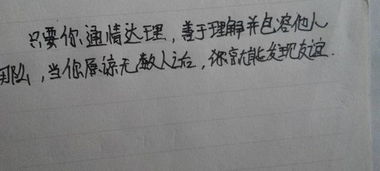 只要你通情达理，善于理解并包容他人
那么，当你原谅无数人之后，你就能发现友谊.